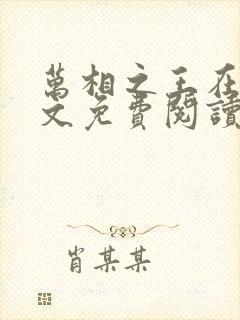 萬相之王在
文免費閱讀
肖某某